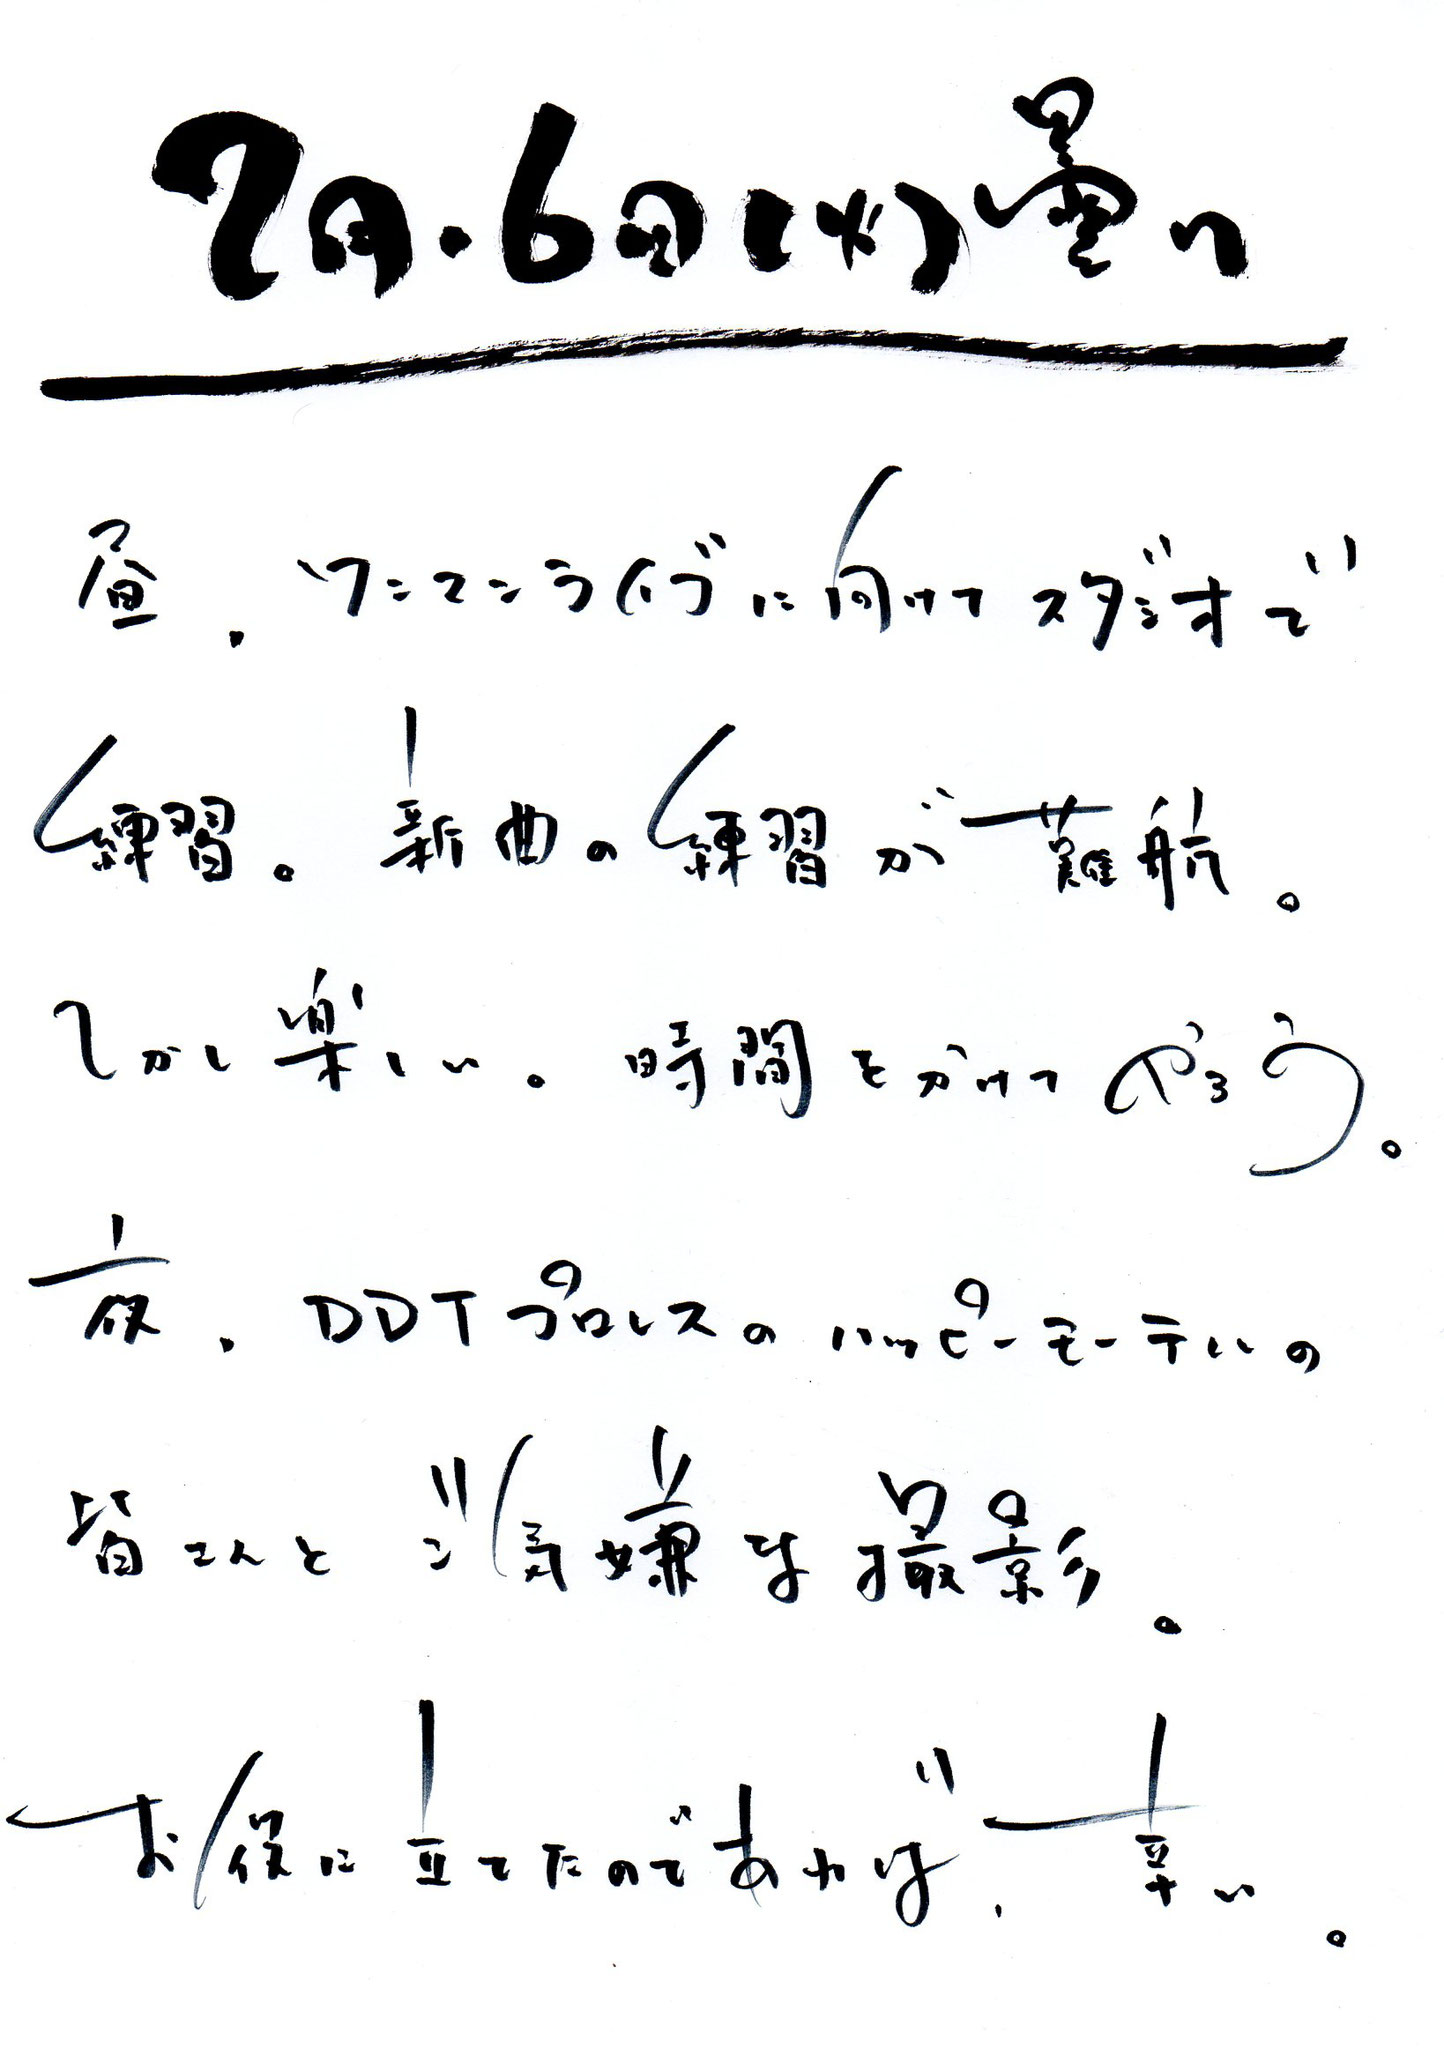 7月.6日(火)曇り
昼、ワンマンライブに向けてスタジオで
練習。新曲の練習が難航。
しかし楽しい。時間をかけてやろう。
夜、DDTプロレスのハッピーモーテルの
皆さんとご機嫌な撮影。
お役に立てたのであれば、幸い。